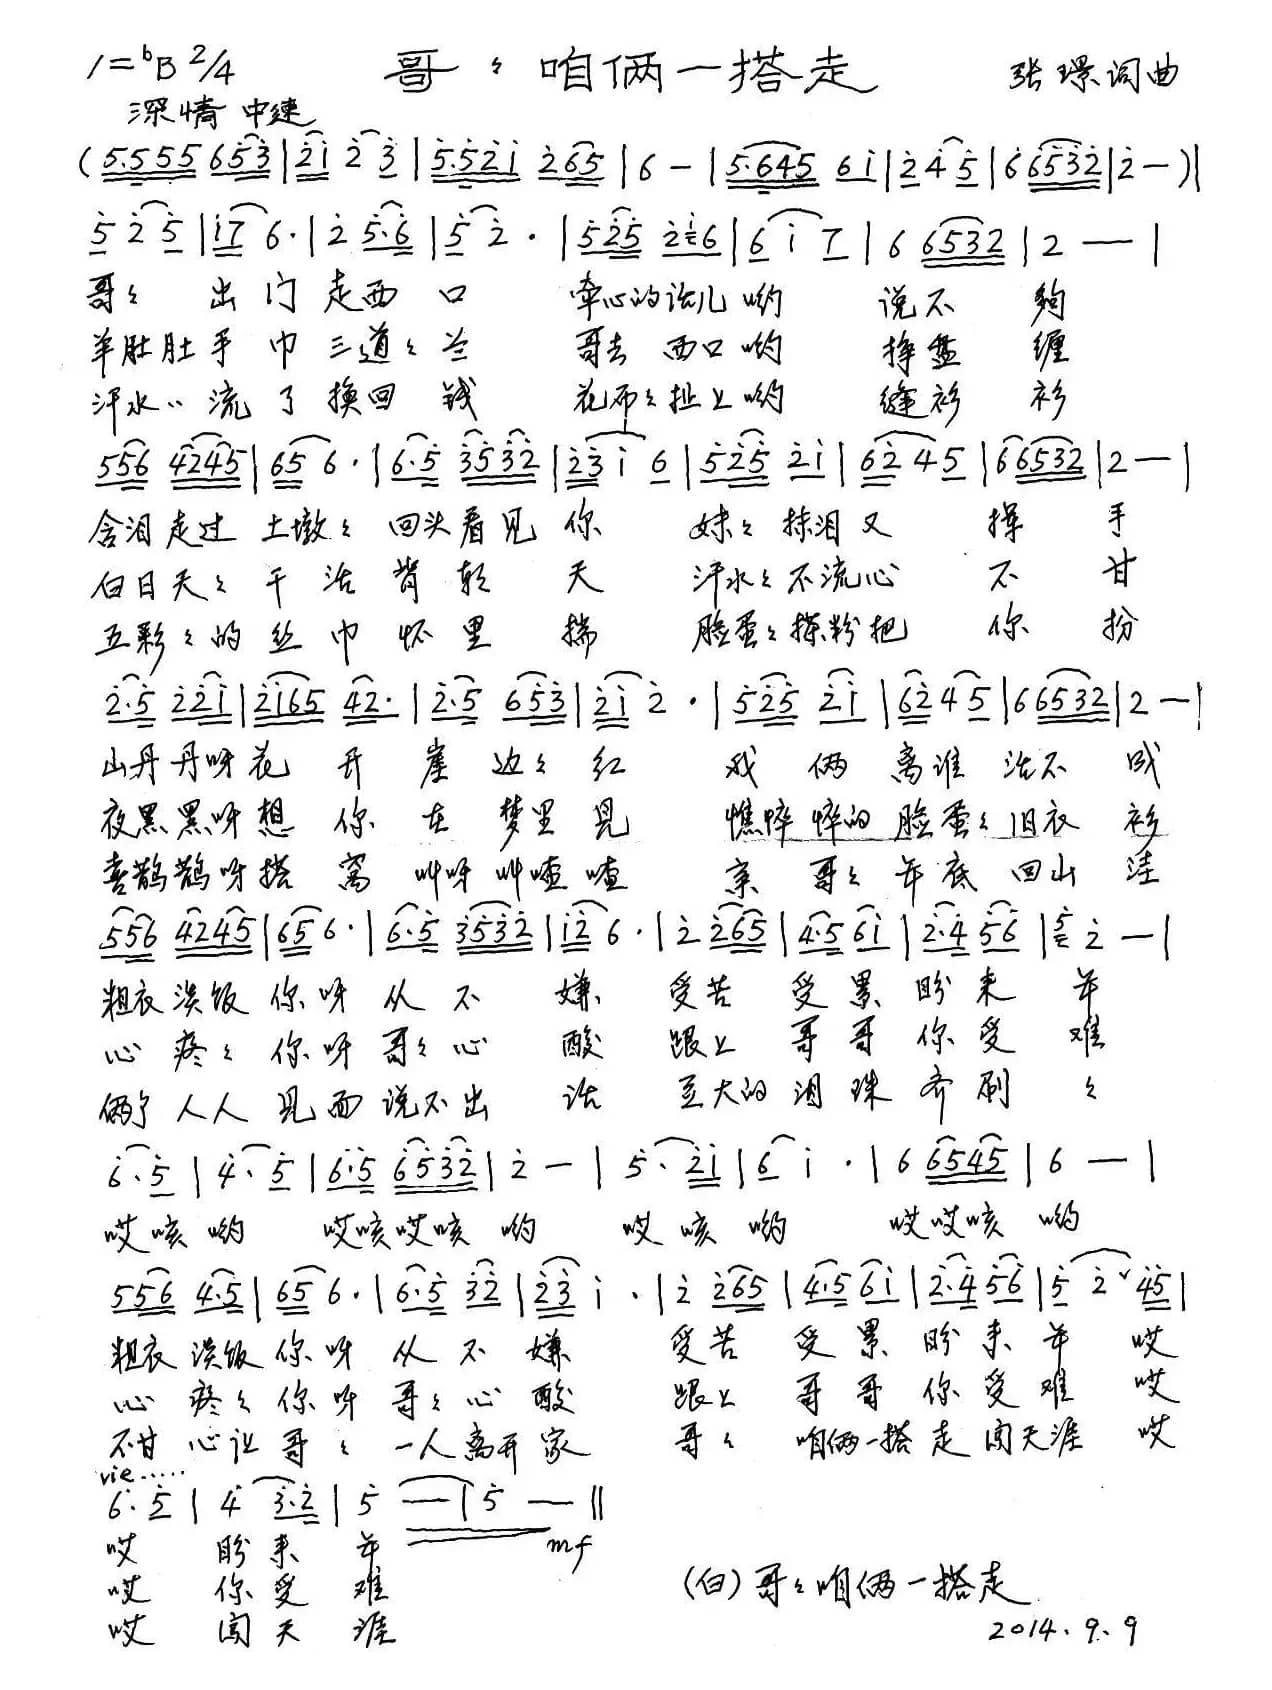 1=ᵇB 2/4 哥〻咱俩一搭走 张璟词曲
深情 中速
(5.555 653|21 2 3|5.521 265|6 -|5.645 61|2 4 5|6 6532|2 -)|
5 2 5|17 6.|2 5.6|5 2.|525 216|6 1 7|6 6532|2 —|
哥〻 出门走西口 牵心的话儿哟 说不够
羊肚肚手巾三道〻兰 哥去西口哟 挣盘缠
汗水〻流了换回钱 花布〻扯上哟 缝衫衫
556 4245|65 6.|6.5 3532|23 1 6|525 21|62 45|66532|2 —|
含泪走过土墩〻 回头看见你 妹〻抹泪又挥手
白日天〻干活背朝天 汗水〻不流心不甘
五彩〻的丝巾怀里揣 脸蛋〻搽粉把你扮
2.5 221|2165 42.|2.5 653|21 2.|525 21|6245|66532|2 —|
山丹丹呀花开崖边〻红 我俩离谁活不成
夜黑黑呀想你在梦里见 憔悴悴的脸蛋〻旧衣衫
喜鹊鹊呀搭窝叫呀叫喳喳 亲哥〻年底回山洼
556 4245|65 6.|6.5 3532|12 6.|2 265|4.5 61|2.4 56|5 2 —|
粗衣淡饭你呀从不嫌 受苦受累盼来年
心疼〻你呀哥〻心酸 跟上哥哥你受难
俩个人人见面说不出话 豆大的泪珠齐刷〻
6.5|4.5|6.5 6532|2 —|5.21|6 1.|6 6545|6 —|
哎咳哟 哎咳哎咳哟 哎咳哟 哎哎咳哟
556 4.5|65 6.|6.5 32|23 1.|2 265|4.5 61|2.4 56|5 2ˇ45|
粗衣淡饭你呀从不嫌 受苦受累盼来年 哎
心疼〻你呀哥〻心酸 跟上哥哥你受难 哎
不甘心让哥〻一人离开家 哥〻咱俩一搭走闯天涯 哎
vie.....
6.5|4 3.2|5 —|5 —‖
mf
哎 盼来年
哎 你受难
哎 闯天涯
(白)哥〻咱俩一搭走
2014.9.9